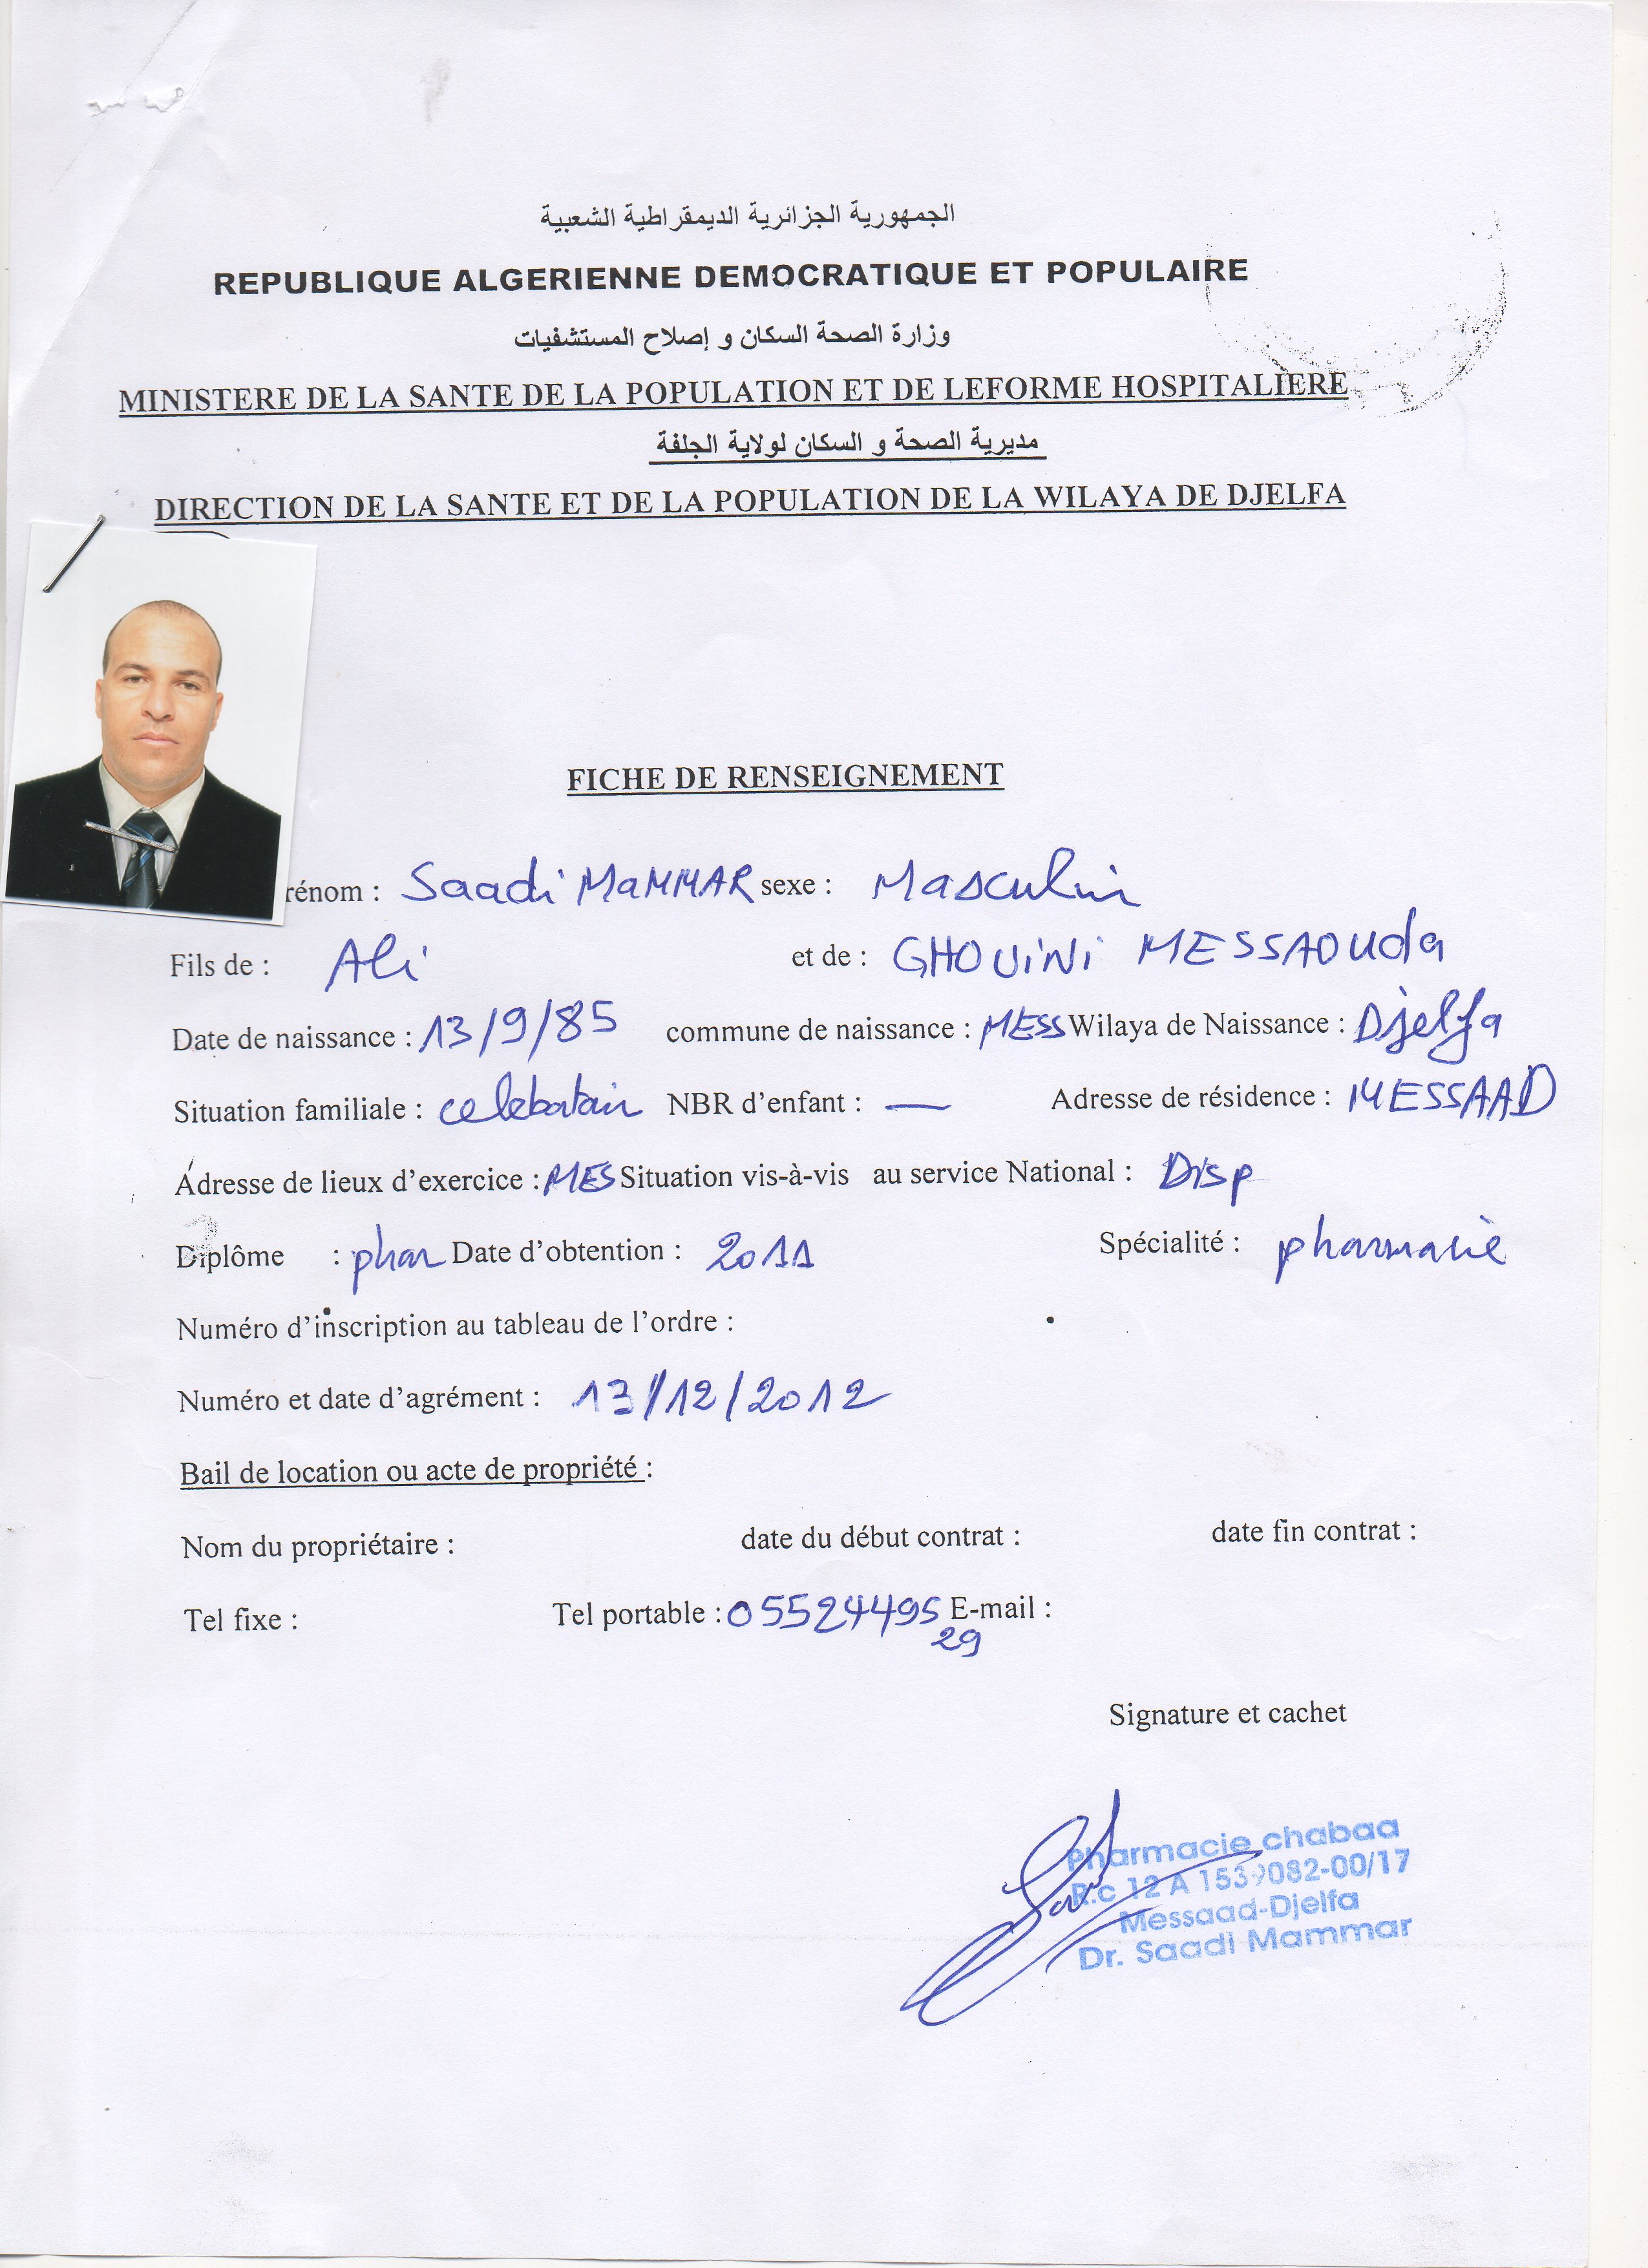 الجمهورية الجزائرية الديمقراطية الشعبية
REPUBLIQUE ALGERIENNE DEMOCRATIQUE ET POPULAIRE
وزارة الصحة السكان و إصلاح المستشفيات
MINISTERE DE LA SANTE DE LA POPULATION ET DE LEFORME HOSPITALIERE
مديرية الصحة و السكان لولاية الجلفة
DIRECTION DE LA SANTE ET DE LA POPULATION DE LA WILAYA DE DJELFA
FICHE DE RENSEIGNEMENT
rénom : Saadi MaMMAR sexe : Masculin
Fils de : Ali et de : GHOUiNi MESSAOUda
Date de naissance : 13/9/85 commune de naissance : MESS Wilaya de Naissance : Djelfa
Situation familiale : celebatair NBR d'enfant : — Adresse de résidence : MESSAAD
Adresse de lieux d'exercice : MES Situation vis-à-vis au service National : Disp
Diplôme : phar Date d'obtention : 2011 Spécialité : pharmacie
Numéro d'inscription au tableau de l'ordre :
Numéro et date d'agrément : 13/12/2012
Bail de location ou acte de propriété :
Nom du propriétaire : date du début contrat : date fin contrat :
Tel fixe : Tel portable : 05524495 E-mail :
29
Signature et cachet
Pharmacie chabaa
R.c 12 A
Messaad-Djelfa
Dr. Saadi Mammar